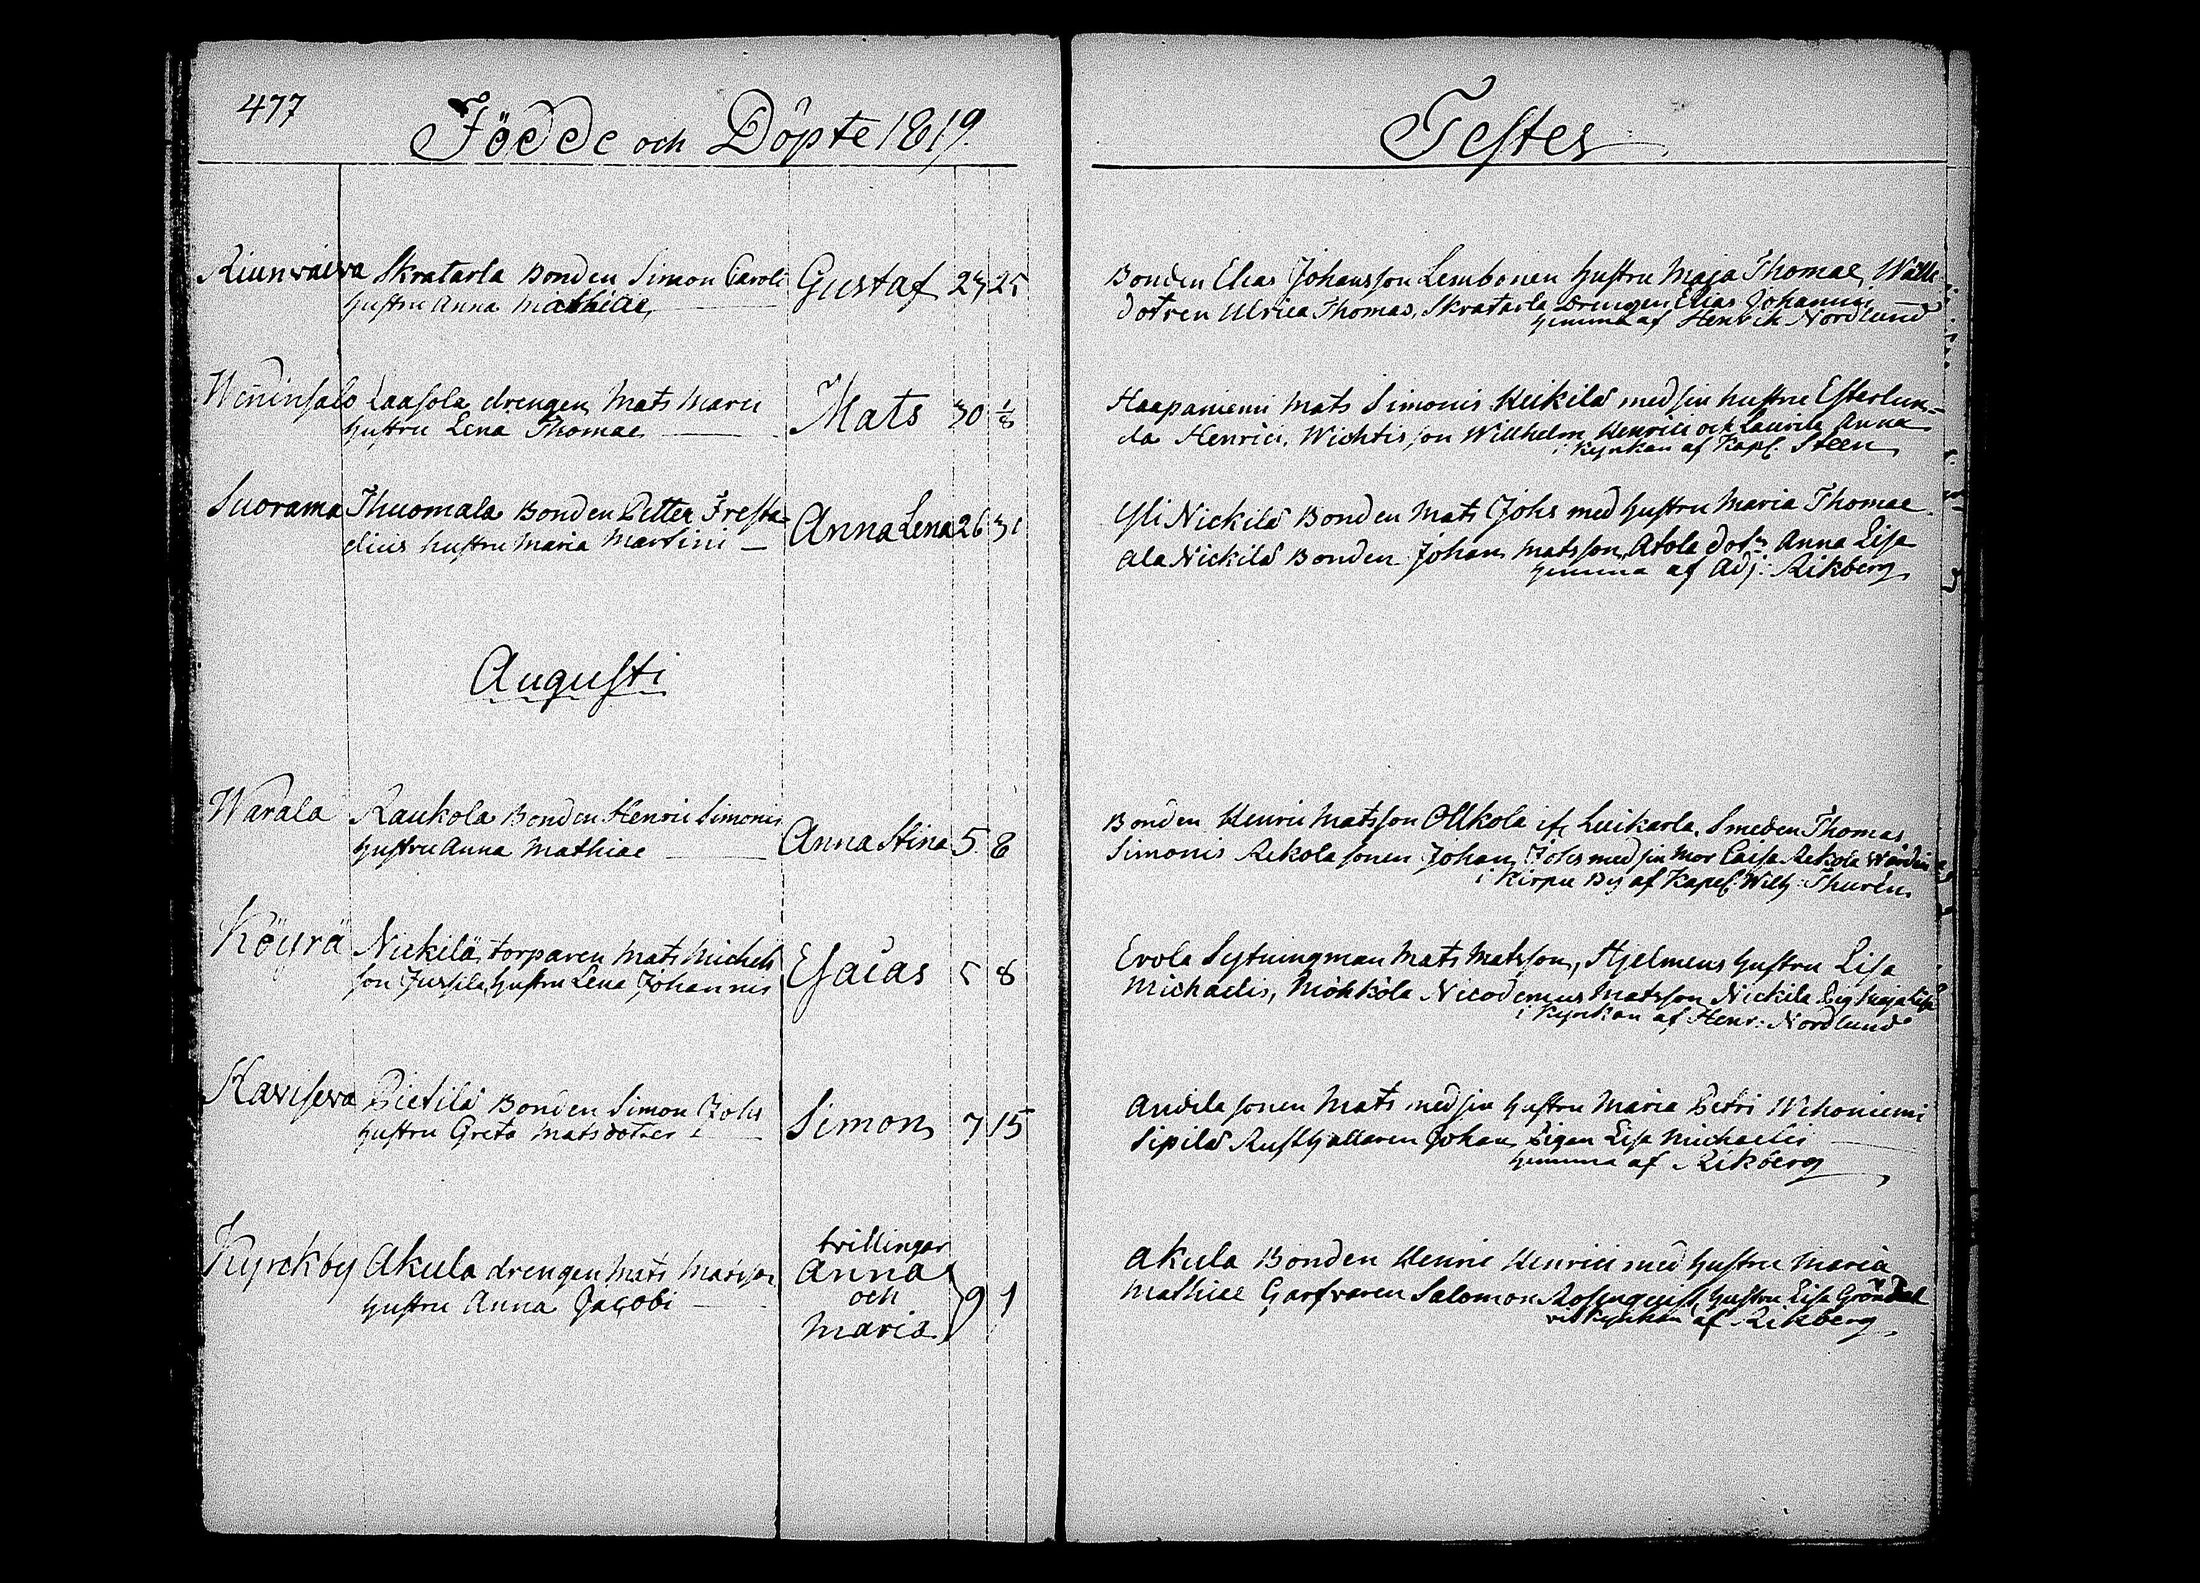 477
Födde och Döpte 1819.
Testes
Riunvaiva Skratarla Bonden Simon Caroli Gustaf 23 25
hustru Anna Mathiae,
Bonden Elias Johansson Lembonen hustru Maja Thomae,
dotren Ulrica Thomas, Skratarla Drengen Elias Johanni
hemma af Henrik Nordlund
Weninsalo Laasola drengen Mats Marci Mats 30 1/8
hustru Lena Thomae
Haapaniemi Mats Simonis Keikilä med sin hustru Esterlun-
da Henrici, Wichtis son Willhelm Henrici och Laurila Anna
i Kyrkan af Kapl. Steen
Suorama Thuomala Bonden Petter Fresta- Anna Lena 26 31
dius hustru Maria Martini
Yli Nickilä Bonden Mats Johs med hustru Maria Thomae
Ala Nickilä Bonden Johan Matsson, Atola dotr Anna Lisa
hemma af Adj: Rikberg
Augusti
Warala Raukola Bonden Henric Simonis Anna Stina 5 8
hustru Anna Mathiae
Bonden Henric Matsson Ollkola ifr Luikarla, Smeden Thomas
Simonis Rekola sonen Johan Johs med sin mor Caisa Rekola
i Kirpu By af Kapel: Wilh: Thurén
Köyrä Nickilä, torparen Mats Michels Esaias 5 8
son Jussila, hustru Lena Johannis
Evola Sytningman Mats Matsson, Hjelmens hustru Lisa
Michaelis, Möhköla Nicodemus Matsson Nickila Pig Maja Lisa
i Kyrkan af Henr: Nordlund
Havisewa Pietilä Bonden Simon Johs Simon 7 15
hustru Greta Matsdotter
Andila sonen Mats med sin hustru Maria Petri Wehoniemi
Sipilä Rusthållaren Johan, Pigan Lisa Michaelis
hemma af Rikberg
Kyrckby Akula drengen Mats Matsson tvillingar Anna och Maria 9 1
hustru Anna Jacobi
Akula Bonden Henric Henrici med hustru Maria
Mathiae Garfvaren Salomon Rosenquist, hustru Lisa Gröndal
vid Kyrkan af Rikberg